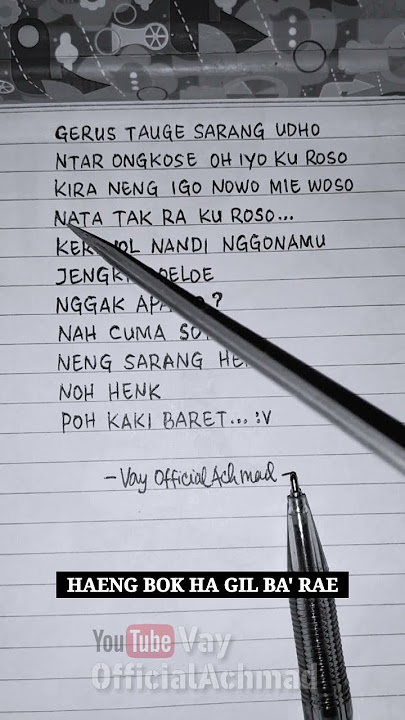 GERUS TAUGE SARANG UDHO
NTAR ONGKOSE OH IYO KU ROSO
KIRA NENG IGO NOWO MIE WOSO
NATA TAK RA KU ROSO...
NANDI NGGONAMU
NGGAK
NAH CUMA
NENG SARANG
NOH HENK
POH KAKI BARET... :V
-Vay OfficialAchmad-
HAENG BOK HA GIL BA' RAE
YouTube Vay
OfficialAchmad